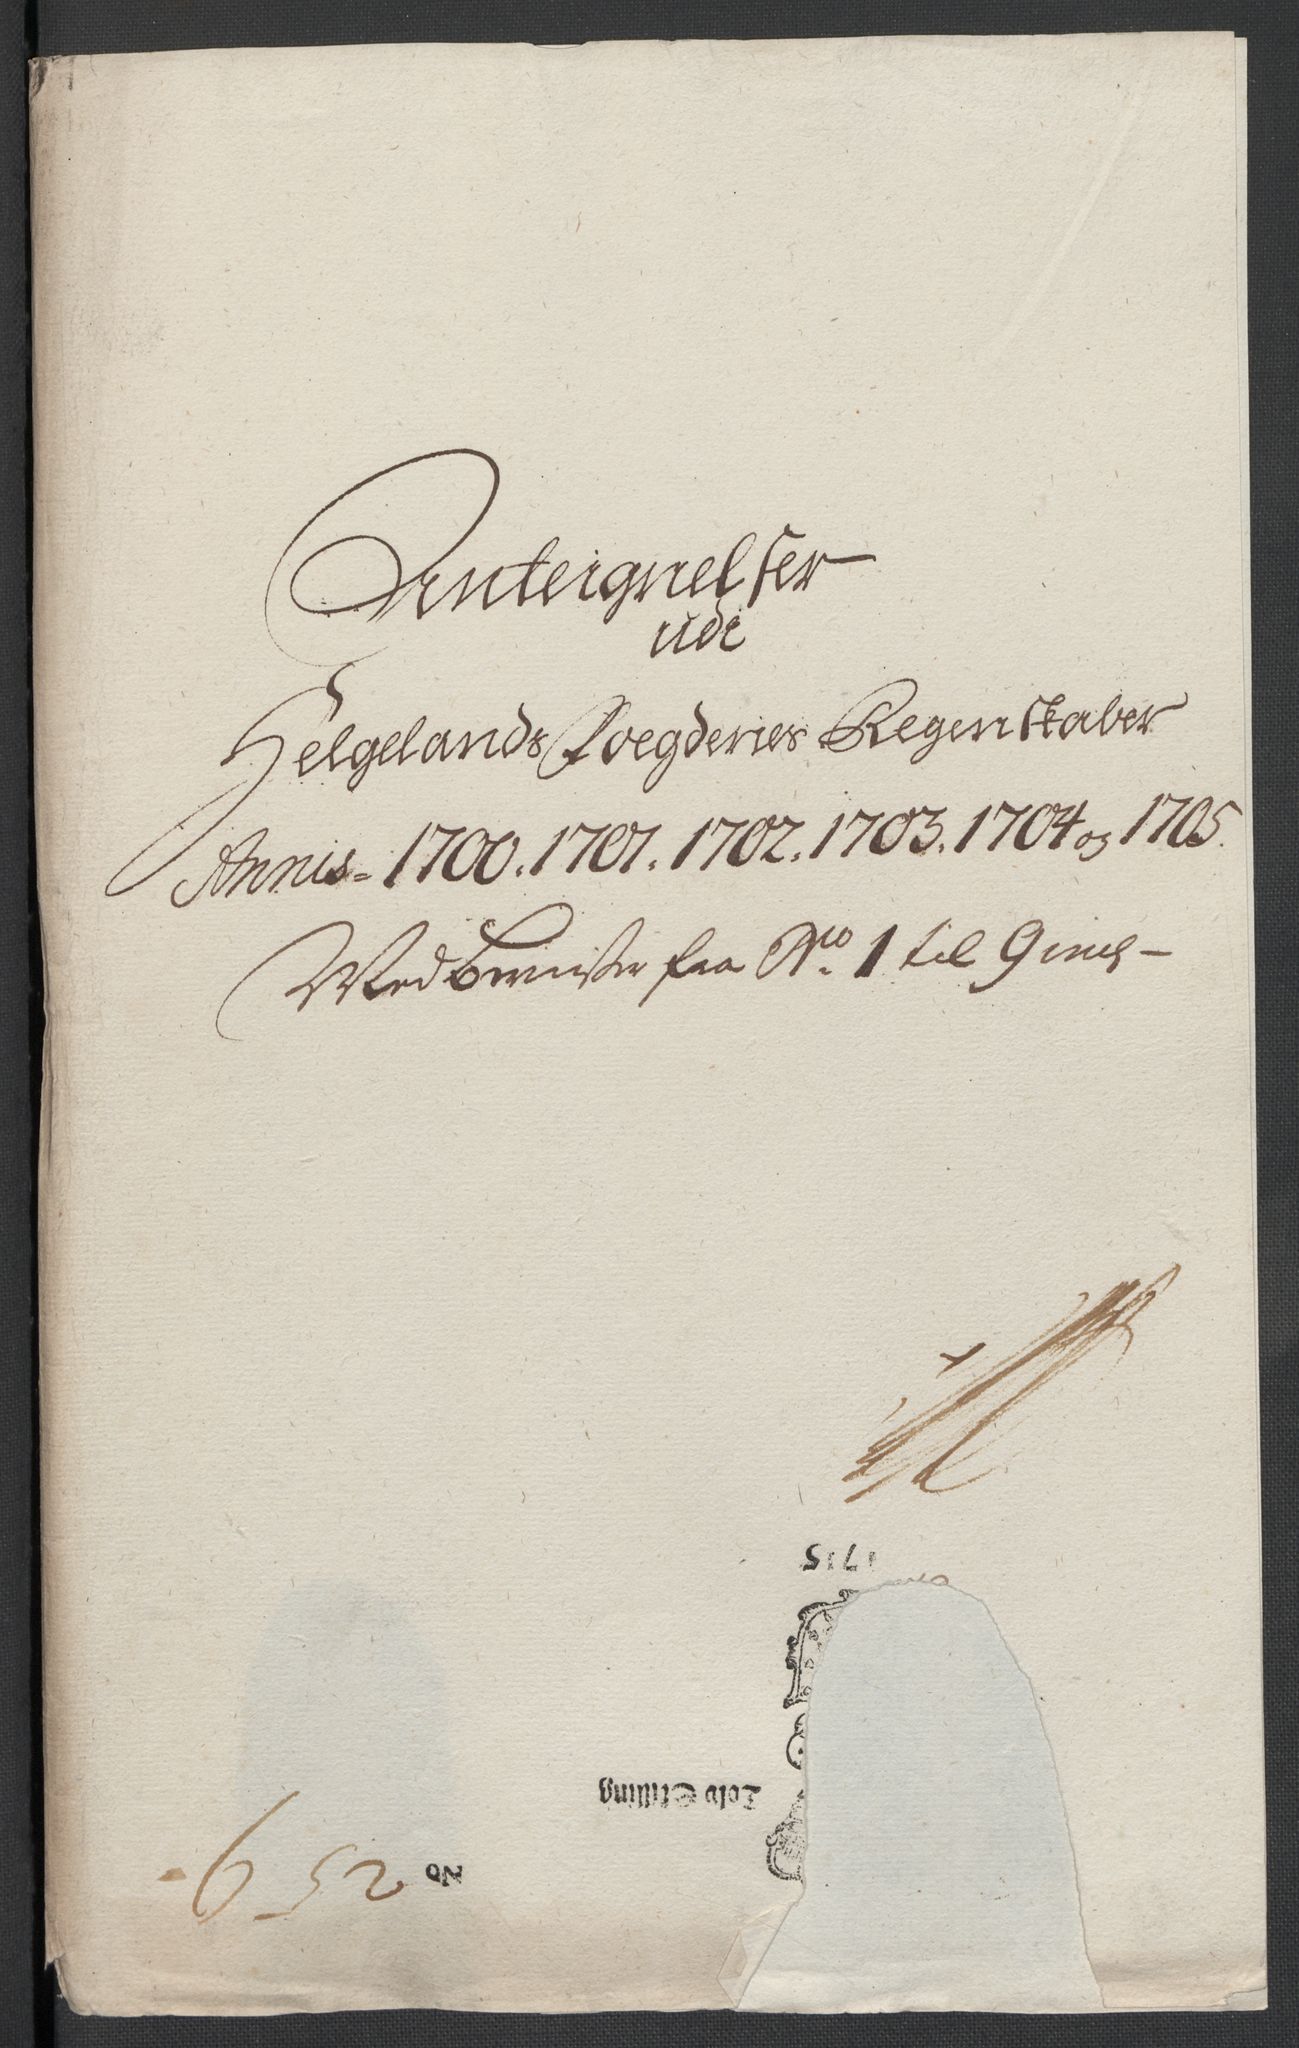 Anteignelser
udi
Helgelands Foegderies Regenskaber
Annis = 1700. 1701. 1702. 1703. 1704 og 1705.
Med Beviser fra No. 1 til 9 incl -
1715
Tolv Skilling
No 259.